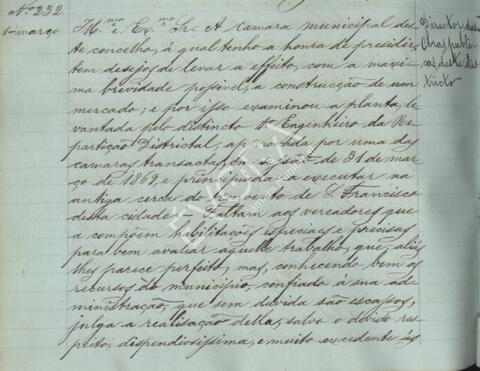 Nº 232
1-março
Il.mo e Ex.mo Sr. A Camara municipal des-
te concelho, á qual tenho a honra de presidir,
tem desejos de levar a effeito, com a maxi-
ma brevidade possivel, a construcção de um
mercado; e por isso examinou a planta, le-
vantada pelo distincto 1º Engenheiro da Re-
partição Districtal, approvada por uma das
camaras transactas, em sessão de 31 de mar-
ço de 1869, e principiada a executar na
antiga cerca do convento de S. Francisco
desta cidade. Faltam aos vereadores que
a compõem habilitações especiaes e precisas
para bem avaliar aquelle trabalho, que, aliás
lhes parece perfeito, mas, conhecendo bem os
recursos do municipio, confiado á sua ad-
ministração, que sem duvida são escassos,
julga a realisação della, salvo o devido res-
peito, dispendiosissima, e muito excedente ás
Director das
obras publi-
cas deste dis-
tricto